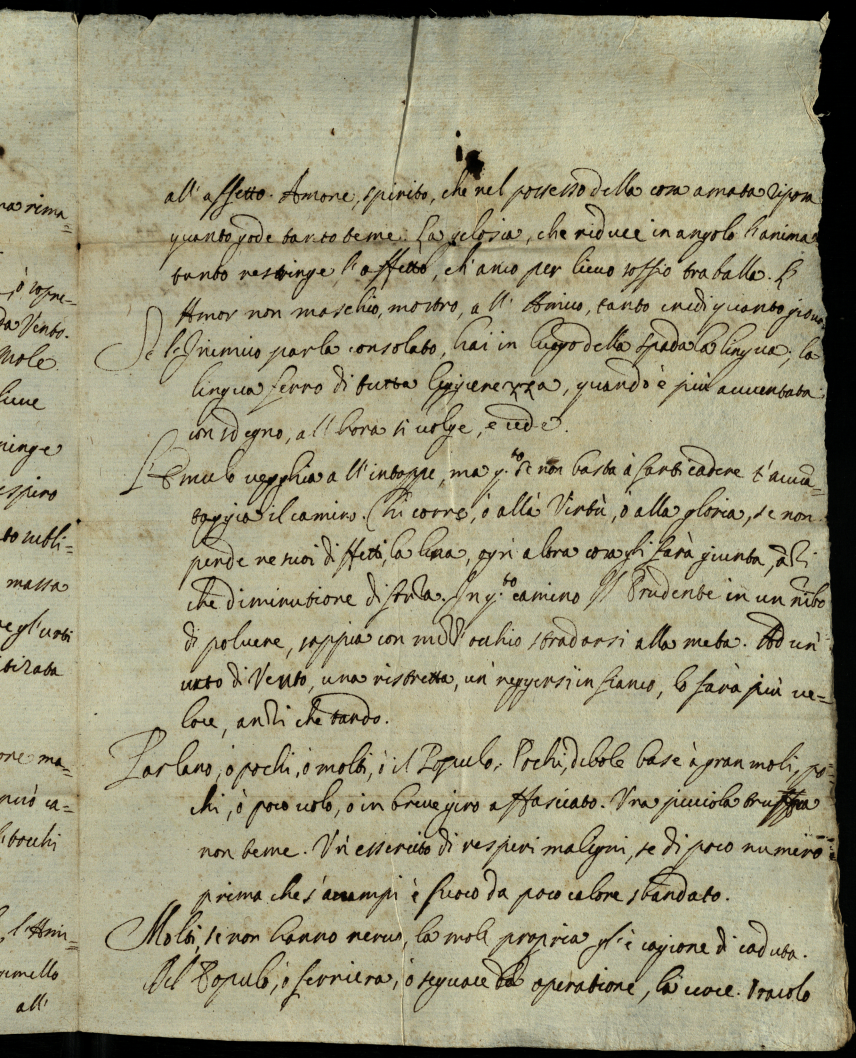 ma rima=
ò sopre=
da Vento.
Mole
lieue
ringe
espiro
to subli=
massa
re gl'urti
itirata
one ma=
ca=
tocchi
l'Ami=
all'
all'affetto. Amore, spirito, che nel possesso della cosa amata riposa
quanto gode tanto teme. La gelosia, che riduce in angolo l'anima
tanto restringe l'affetto, ch'anco per lieue soffio traballa. L'
Amor non maschio, mostro, all'Amico, tanto credi quanto gioua
Se l'Inimico parla consolato, hai in luogo della spada la lingua; la
lingua ferro di tutta leggierezza, quando è più auuentata
con sdegno, all'hora si volge, e cede.
L'Emulo vegghia all'intoppo, ma q.to se non basta à farti cadere t'auuan=
taggia il camino. Chi corre, ò alla Virtù, ò alla gloria, se non
pende ne suoi diffetti, la lena, ogni altra cosa gli sarà giunta, anzi
che diminutione di strada. In q.to camino Il Prudente in un nibo
di poluere, sappia con l'occhio stradarsi alla meta. Ad un'
urto di Vento, una ristretta, un reggersi in fianco, lo farà più ue=
loce, anzi che tardo.
Parlano, ò pochi, ò molti, ò il Populo. Pochi, debole base à gran moli, po=
chi, ò poco uolo, ò in breue giro affasciato. Vna picciola truppa
non teme. Vn essercito di respiri maligni, se di poco numero
prima che s'acampi è fuoco da poco calore sbandato.
Molti, se non hanno neruo, la mole propria gl'è cagione di caduta.
Del Populo, ò forriera, ò seguace da operatione, la uoce. Oracolo